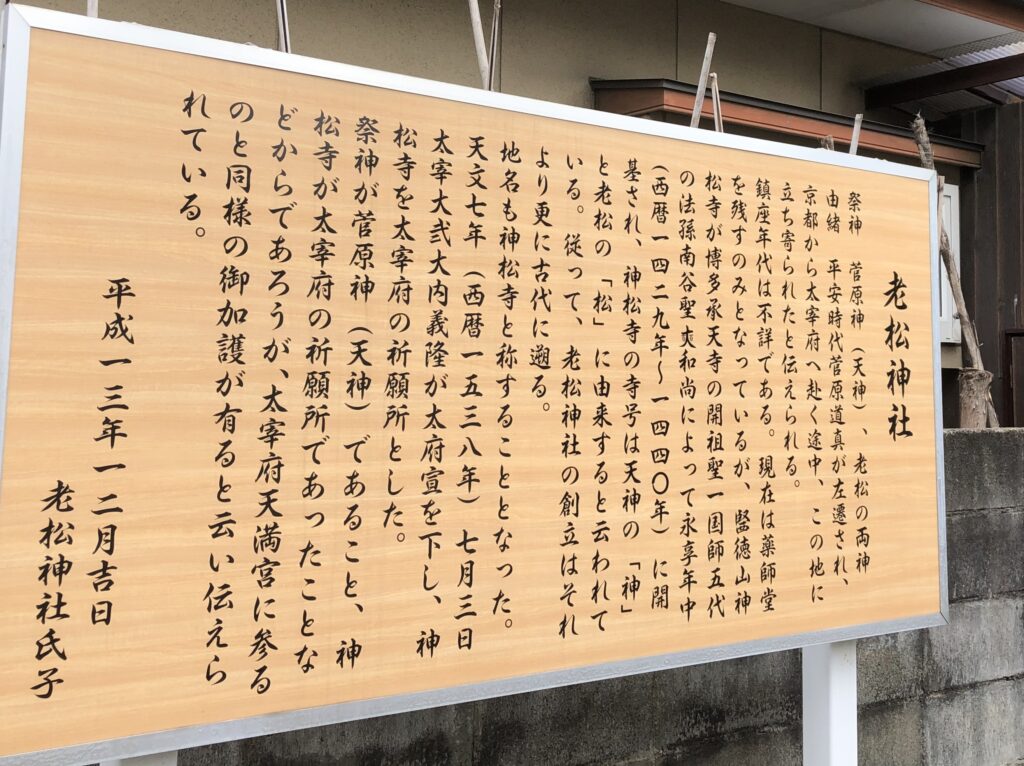 老松神社
祭神　菅原神（天神）、老松の両神
由緒　平安時代菅原道真が左遷され、
京都から太宰府へ赴く途中、この地に
立ち寄られたと伝えられる。
鎮座年代は不詳である。現在は薬師堂
を残すのみとなっているが、堅徳山神
松寺が博多承天寺の開祖聖一国師五代
の法孫南谷聖爽和尚によって永享年中
（西暦一四二九年～一四四〇年）に開
基され、神松寺の寺号は天神の「神」
と老松の「松」に由来すると云われて
いる。従って、老松神社の創立はそれ
より更に古代に遡る。
地名も神松寺と称することとなった。
天文七年（西暦一五三八年）七月三日
太宰大弐大内義隆が太府宣を下し、神
松寺を太宰府の祈願所とした。
祭神が菅原神（天神）であること、神
松寺が太宰府の祈願所であったことな
どからであろうが、太宰府天満宮に参る
のと同様の御加護が有ると云い伝えら
れている。
平成一三年一二月吉日
老松神社氏子